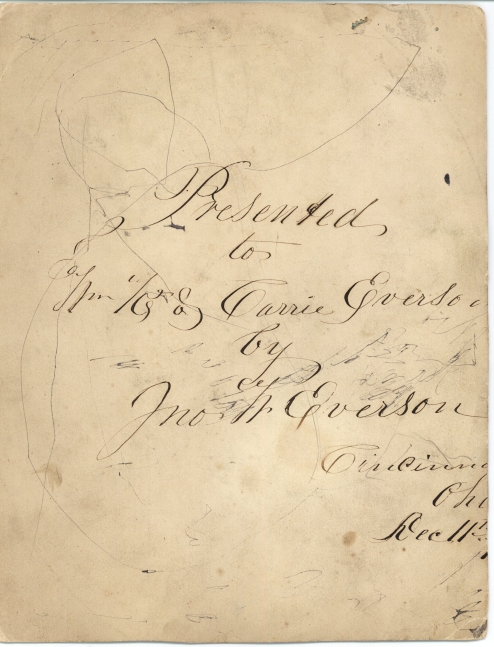 Presented
to
Wm & Carrie Everso
by
Jno W Everson
Cincinna
Ohi
Dec 11